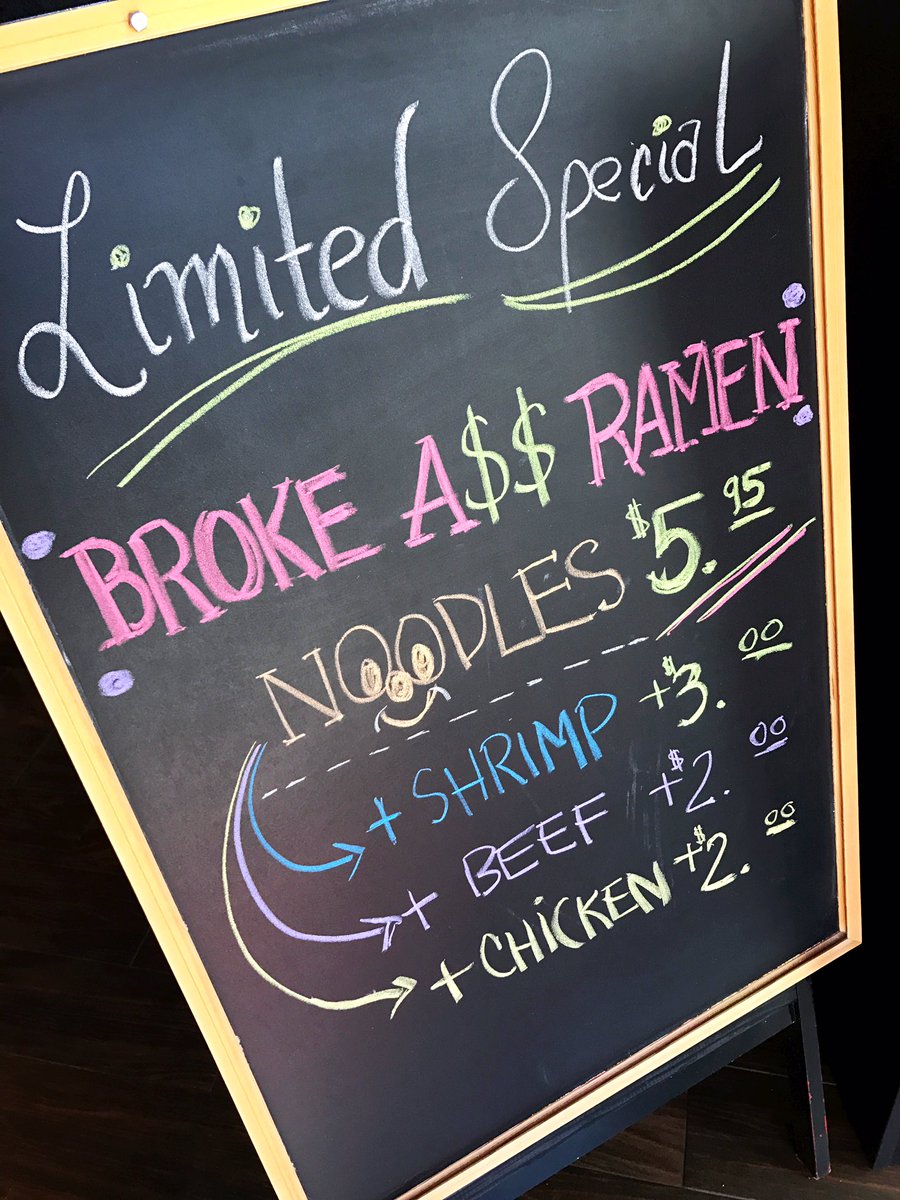 Limited Special
BROKE A$$ RAMEN
NOODLES $5.95
+ SHRIMP +$3.00
+ BEEF +$2.00
+ CHiCKEN +$2.00